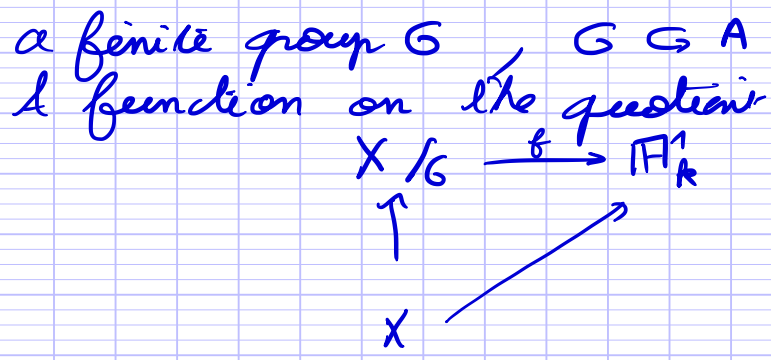 a finite group G, G ↪ A
A function on the quotient
X/G f 𝔸¹ₖ
X